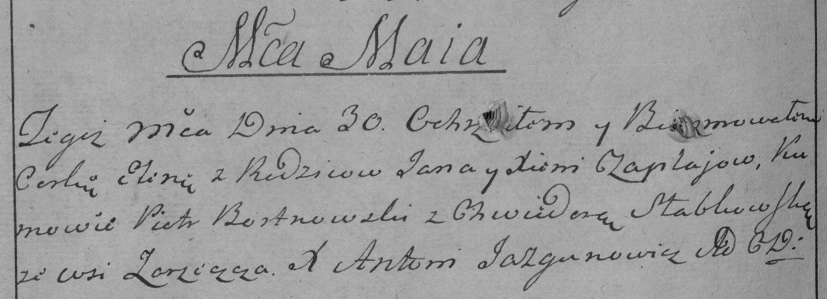 Mca Maia
Tegiż mca Dnia 30. Ochrzciłem y Bierzmowałem
Corkę Elenę z Rodzicow Jana y Xieni Czapłajow, Ku
mowie Piotr Bortnowski z Chwiedorą Stabkowską
ze wsi Zarzecza. X Antoni Jazgunowicz AD CD: